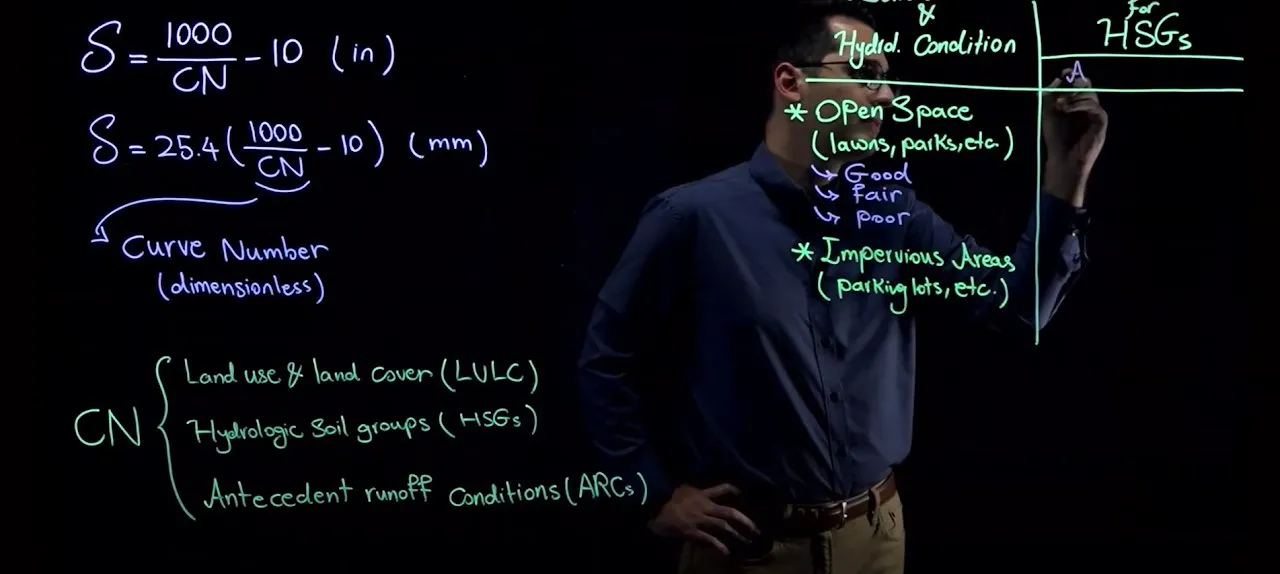 S = 1000/CN - 10 (in)
S = 25.4 (1000/CN - 10) (mm)
Curve Number
(dimensionless)
CN
Land use & land cover (LULC)
Hydrologic Soil groups (HSGs)
Antecedent runoff conditions (ARCs)
&
Hydrol. Condition
* Open Space
(lawns, parks, etc.)
↳ Good
↳ fair
↳ poor
* Impervious Areas
(parking lots, etc.)
for
HSGs
A